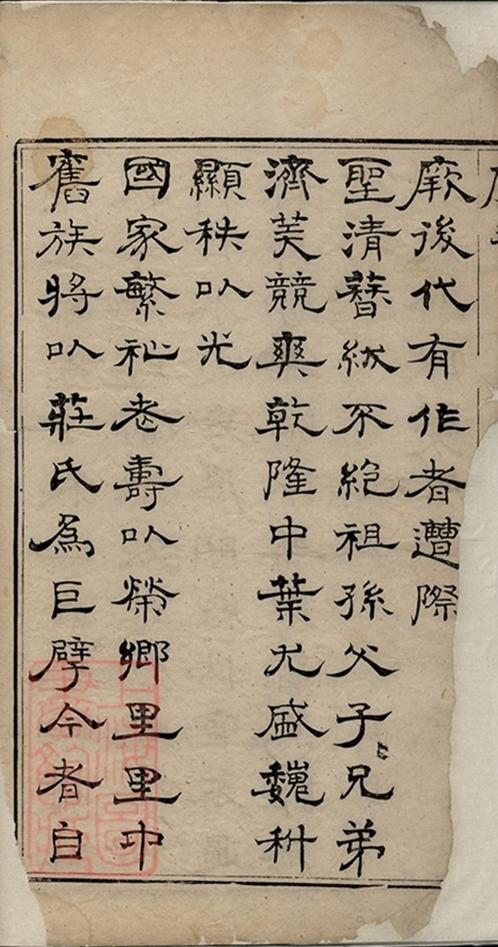 厥後代有作者遭際
聖清簪紱不絕祖孫父子兄弟
濟美競爽乾隆中葉尤盛巍科
顯秩以光
國家繁祉耆壽以榮鄉里里中
舊族將以莊氏為巨擘今者自